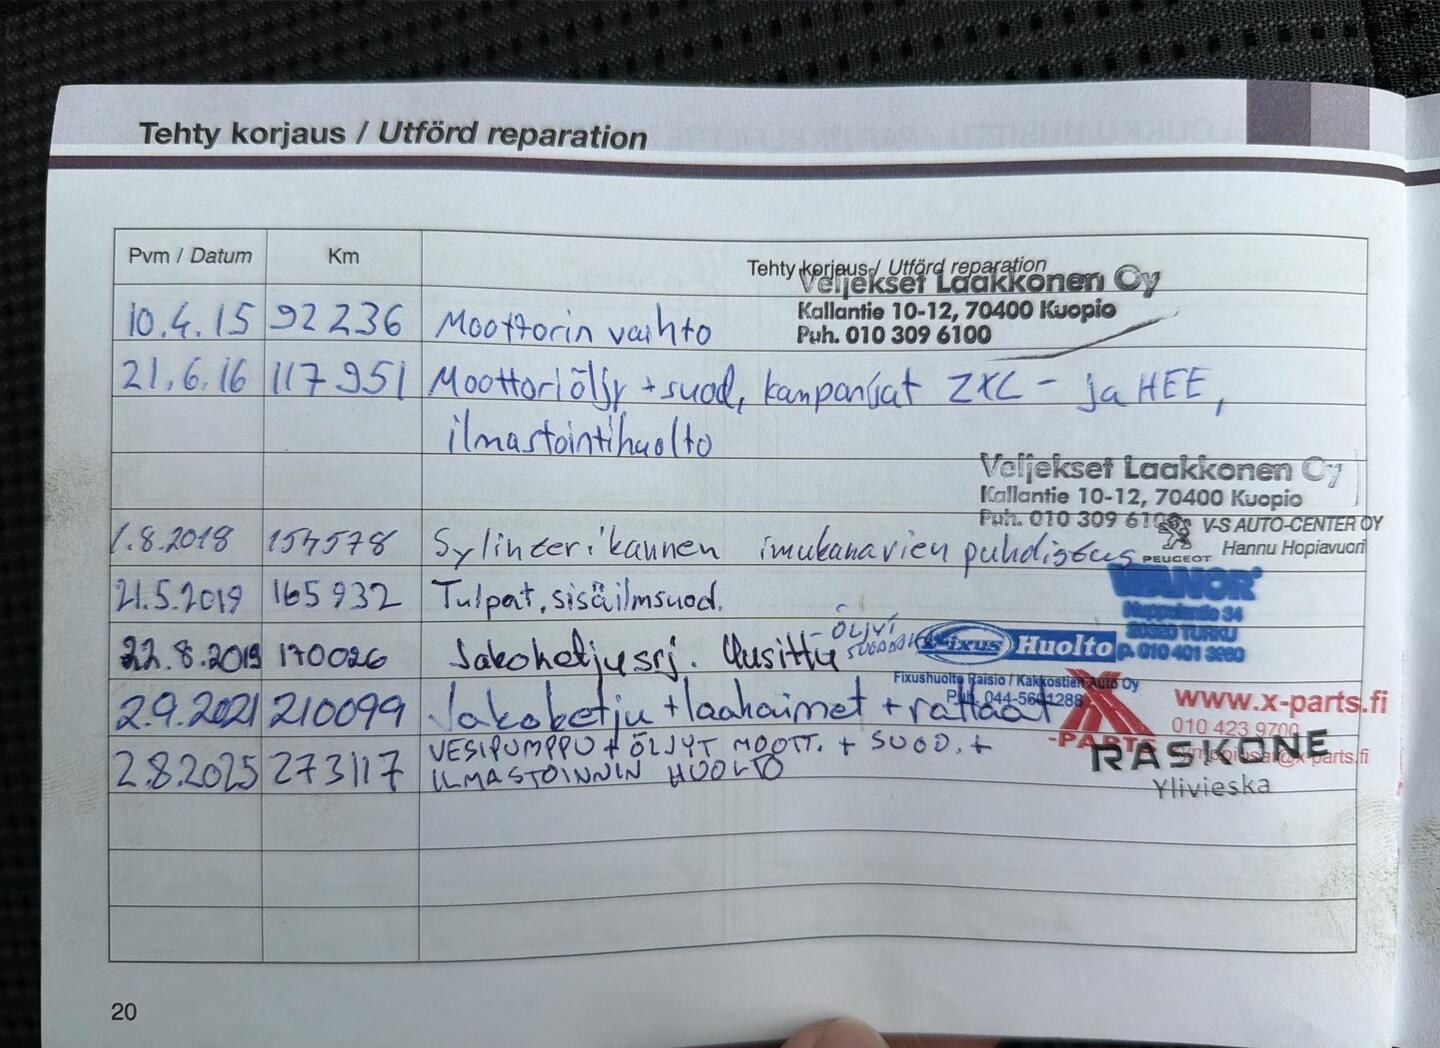 Tehty korjaus / Utförd reparation
Pvm / Datum Km Tehty korjaus / Utförd reparation
Veljekset Laakkonen Oy
Kallantie 10-12, 70400 Kuopio
Puh. 010 309 6100
10.4.15 92236 Moottorin vaihto
21.6.16 117951 Moottoriöljy + suod, kampanjat ZXC - ja HEE,
ilmastointihuolto
Veljekset Laakkonen Oy
Kallantie 10-12, 70400 Kuopio
Puh. 010 309 6100
V-S AUTO-CENTER OY
Hannu Hopiavuori
PEUGEOT
1.8.2018 154578 Sylinterikannen imukanavien puhdistus
21.5.2019 165932 Tulpat, sisäilmsuod.
34
TURKU
p. 010 401 3260
22.8.2019 170026 Jakoketjusrj. Uusittu - ÖLJYT
Fixus Huolto
Fixushuolto Raisio / Kakkostien Auto Oy
Puh. 044-5601288
2.9.2021 210099 Jakoketju + laahaimet + rattaat
X-PARTS
www.x-parts.fi
010 423 9700
x-parts.fi
2.8.2025 273117 VESIPUMPPU + ÖLJYT MOOTT. + SUOD. +
ILMASTOINNIN HUOLTO
RASKONE
Ylivieska
20